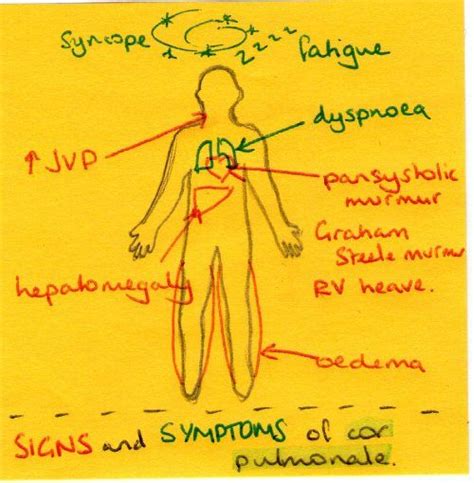 Syncope
zzzz
fatigue
dyspnoea
↑ JVP
pansystolic
murmur
Graham
Steele murmur
RV heave.
hepatomegaly
oedema
SIGNS and SYMPTOMS of cor
pulmonale.